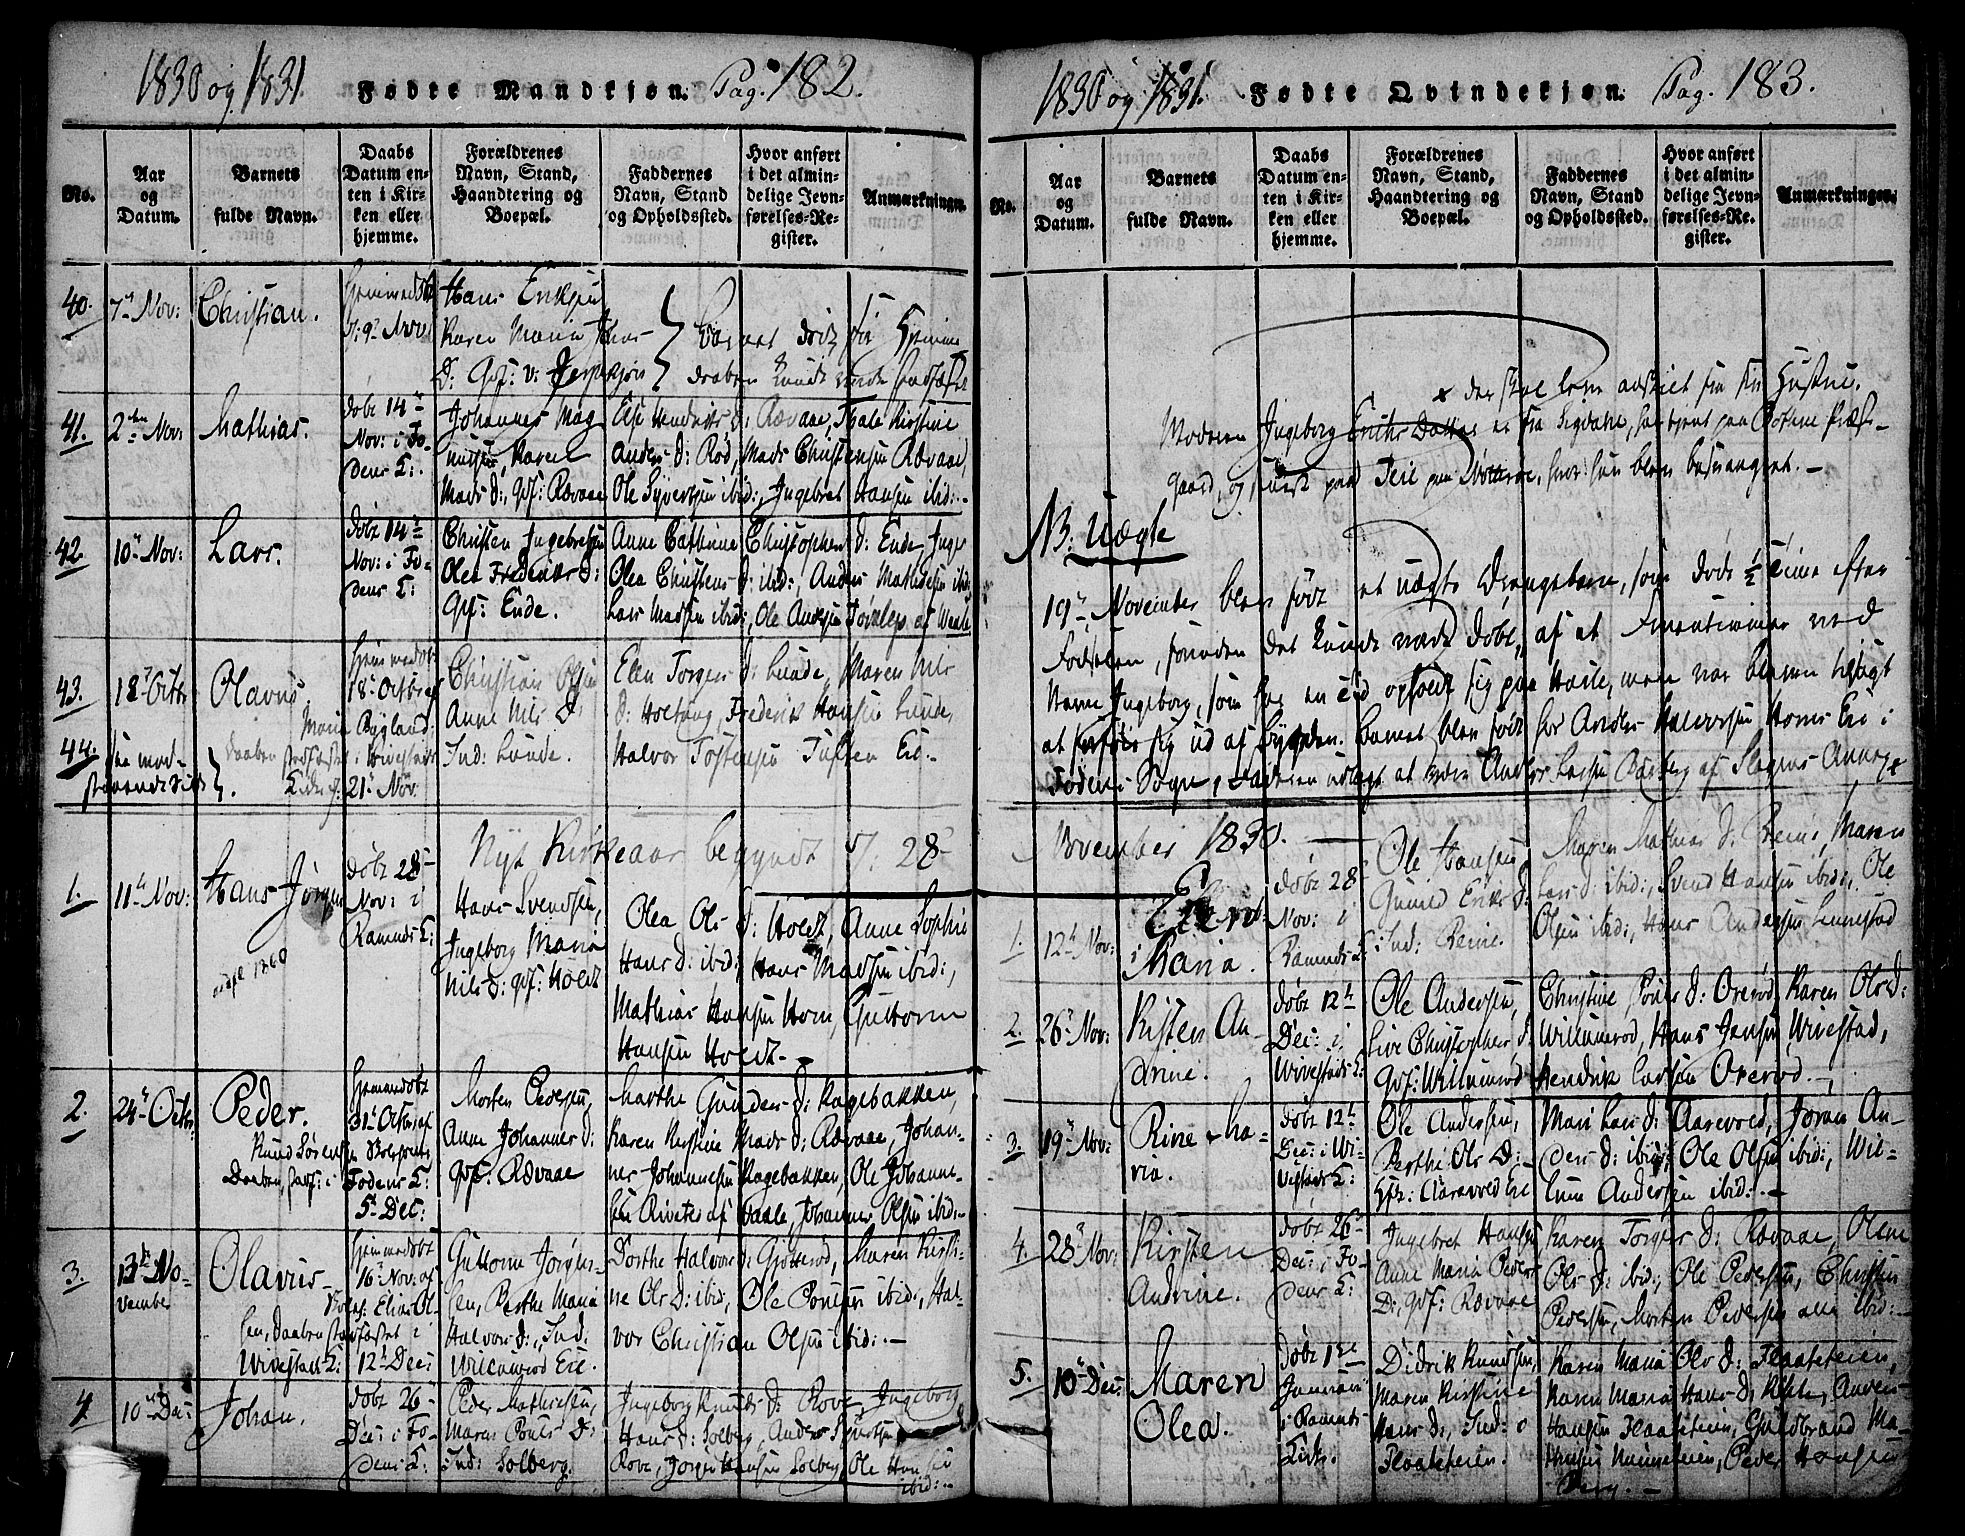 1830 og 1831. Fødte Mandkjøn. Pag. 182.
No.
Aar
og
Datum.
Barnets
fulde Navn.
Daabs
Datum en-
ten i Kir-
ken eller
hjemme.
Forældrenes
Navn, Stand,
Haandtering og
Boepæl.
Faddernes
Navn, Stand
og Opholdssted.
Hvor anført
i det almin-
delige Jevn-
førelses-Re-
gister.
Anmærkninger.
40. 7de Nov:
Christian.
Hjemmedøbt
d: 9de Nov:
Hans Eriksen
Karen Maria
Barnet døde før Hjemme
daaben kunde stadfæstes
41. 2den Nov:
Mathias.
Døbt 14de
Nov: i Fo-
dens K:
Johannes Mag
nussen, Karen
Mads D:, Gsf: Rævaae
Else Hendriks D: Rævaae, Thale Kirstine
Anders D: Rød, Mads Christensen Rævaae,
Ole Syvertsen ibid:, Ingebret Hansen ibid:.
42. 10de Nov:
Lars.
Døbt 14de
Nov: i Fo-
dens K:
Christen Ingebretsen
Olea Frederiks D:
Gsf: Ende.
Anne Cathrine Christophers D: Ende, Inger
Olea Christens D: ibid:, Anders Mathisen ibid:
Lars Madsen ibid:, Ole Andersen
43. 18de Octbr
Olavus.
Hjemmedøbt
18de Octbr af
Maria Bygland.
Christian Olsen
Anne Nils D:
Ind: Lunde.
Elen Torgers D: Lunde, Maren Nils
D: Holtung, Frederik Hansen Lunde,
Halvor Tostensen Tuften Eie.
44. see mod-
staaende Side
Daaben stadfæstet i Vivestad
Kirke d: 21de Nov:
Nyt Kirkeaar begyndt d: 28de
1. 11te Nov:
Hans Jørgen
Døbt 28de
Nov: i
Ramnes K:
Hans Svendsen,
Ingeborg Maria
Nils D: Gsf: Holdt
Olea Ols D: Holdt, Anne Sophie
Hans D: ibid:, Hans Madsen ibid:,
Mathias Hansen Hom, Guttorm
Hansen Holdt.
2. 24de Octbr:
Peder.
Hjemmedøbt
31te Octbr af
Knud Sørensen
Daaben stadf: i Fodens K:
5te Dec:
Morten Pedersen,
Anne Johannes D:
Gsf: Rævaae
Marthe Gunders D: Kagebakken,
Karen Kirstine Mads D: Rævaae, Johan-
nes Johannesen Kagebakken, Ole Johanne-
sen af Vaale, Johannes Olsen ibid:.
3. 13de No-
vember
Olavus
Hjemmedøbt
16de Nov: af
Elias Ol-
sen, Daaben stadfæstet i
Vivestad K: 12te Dec:
Guttorm Jørgen-
sen, Berthe Maria
Halvors D:, Ind:
Willumrød Eie.
Dorthe Halvors D: Gjøtterød, Maren Kirsti-
ne Ols D: ibid, Ole Poulsen ibid:, Hal-
vor Christian Olsen ibid:.
4. 10de Dec:
Johan.
Døbt 26de
Dec: i Fo-
dens K:
Peder Mathisen,
Maren Povels D:
Ind: Solberg.
Ingeborg Knuds D: Rove, Ingeborg
Hans D: Solberg, Anders
Rove, Jørgen Hansen Solberg, Ole Hansen
ibid:.
1830 og 1831. Fødte Qvindekjøn. Pag. 183.
No.
Aar
og
Datum.
Barnets
fulde Navn.
Daabs
Datum en-
ten i Kir-
ken eller
hjemme.
Forældrenes
Navn, Stand,
Haandtering og
Boepæl.
Faddernes
Navn, Stand
og Opholdssted.
Hvor anført
i det almin-
delige Jevn-
førelses-Re-
gister.
Anmærkninger.
x der skal leve adskilt fra sin Hustru.
Moderen Ingeborg Eriks Datter er fra Sigdahl, har tjent paa Præste-
gaard, og senest paa Teie paa Nøtterøe, hvor hun blev besvangret.
NB. Uægte
19de November blev født et uægte Drengebarn, som døde ½ Time efter
Fødselen, foruden det kunde vorde døbt, af et Fruentimmer ved
Navn Ingeborg, som har en Tid opholdt sig paa Vaale, men var bleven tilsagt
at forføie sig ud af Bygden. Barnet blev født hos Anders Halvorsen Homs Eie i
Fodens Sogn, Faderen udlagt at være Anders Larsen Basberg af Slagens Annex x
November 1830.
1. 12te Nov:
Ellen
Maria.
Døbt 28de
Nov: i
Ramnes K:
Ole Hansen
Gunild Eriks D:
Ind: Reine.
Maren Mathias D: Reine, Maren
Lars D: ibid:, Svend Hansen ibid:, Ole
Olsen ibid:, Hans Andersen Linnestad
2. 26de Nov:
Kisten An-
drine.
Døbt 12te
Dec: i
Vivestads K:
Ole Andersen,
Live Christophers D:
Gsf: Willumrød
Christine Povels D: Orerød, Karen Ols D:
Willumrød, Hans Jensen Vivestad,
Hendrik Larsen Orerød.
3. 19de Nov:
Rine Ma-
ria.
Døbt 12te
Dec: i Wi-
vestads K:
Ole Andersen,
Berthe Ols D:
Aarevold Eie
Mari Lars D: Aarevold, Joran An-
ders D: ibid:, Ole Olsen ibid:, Wil-
lum Andersen ibid:.
4. 28de Nov:
Kirsten
Andrine.
Døbt 26de
Dec: i Fo-
dens K:
Ingebret Hansen
Anne Maria Peders
D: Gsf: Rævaae
Karen Torgers D: Rævaae, Olene
Ols D: ibid:, Ole Pedersen, Christen
Pedersen, Morten Pedersen alle ibid:.
5. 10de Dec:
Maren
Olea.
Døbt 1ste
Januari
i Ramnes
Kirke.
Didrik Knudsen,
Maren Kirstine
Hans D:, Ind:
Flaateteien.
Karen Maria Ols D: Flaateteien,
Karen Maria Hans D: Anders
Hansen Flaateteien, Guldbrand Ma-
Peder Hansen
Berg.